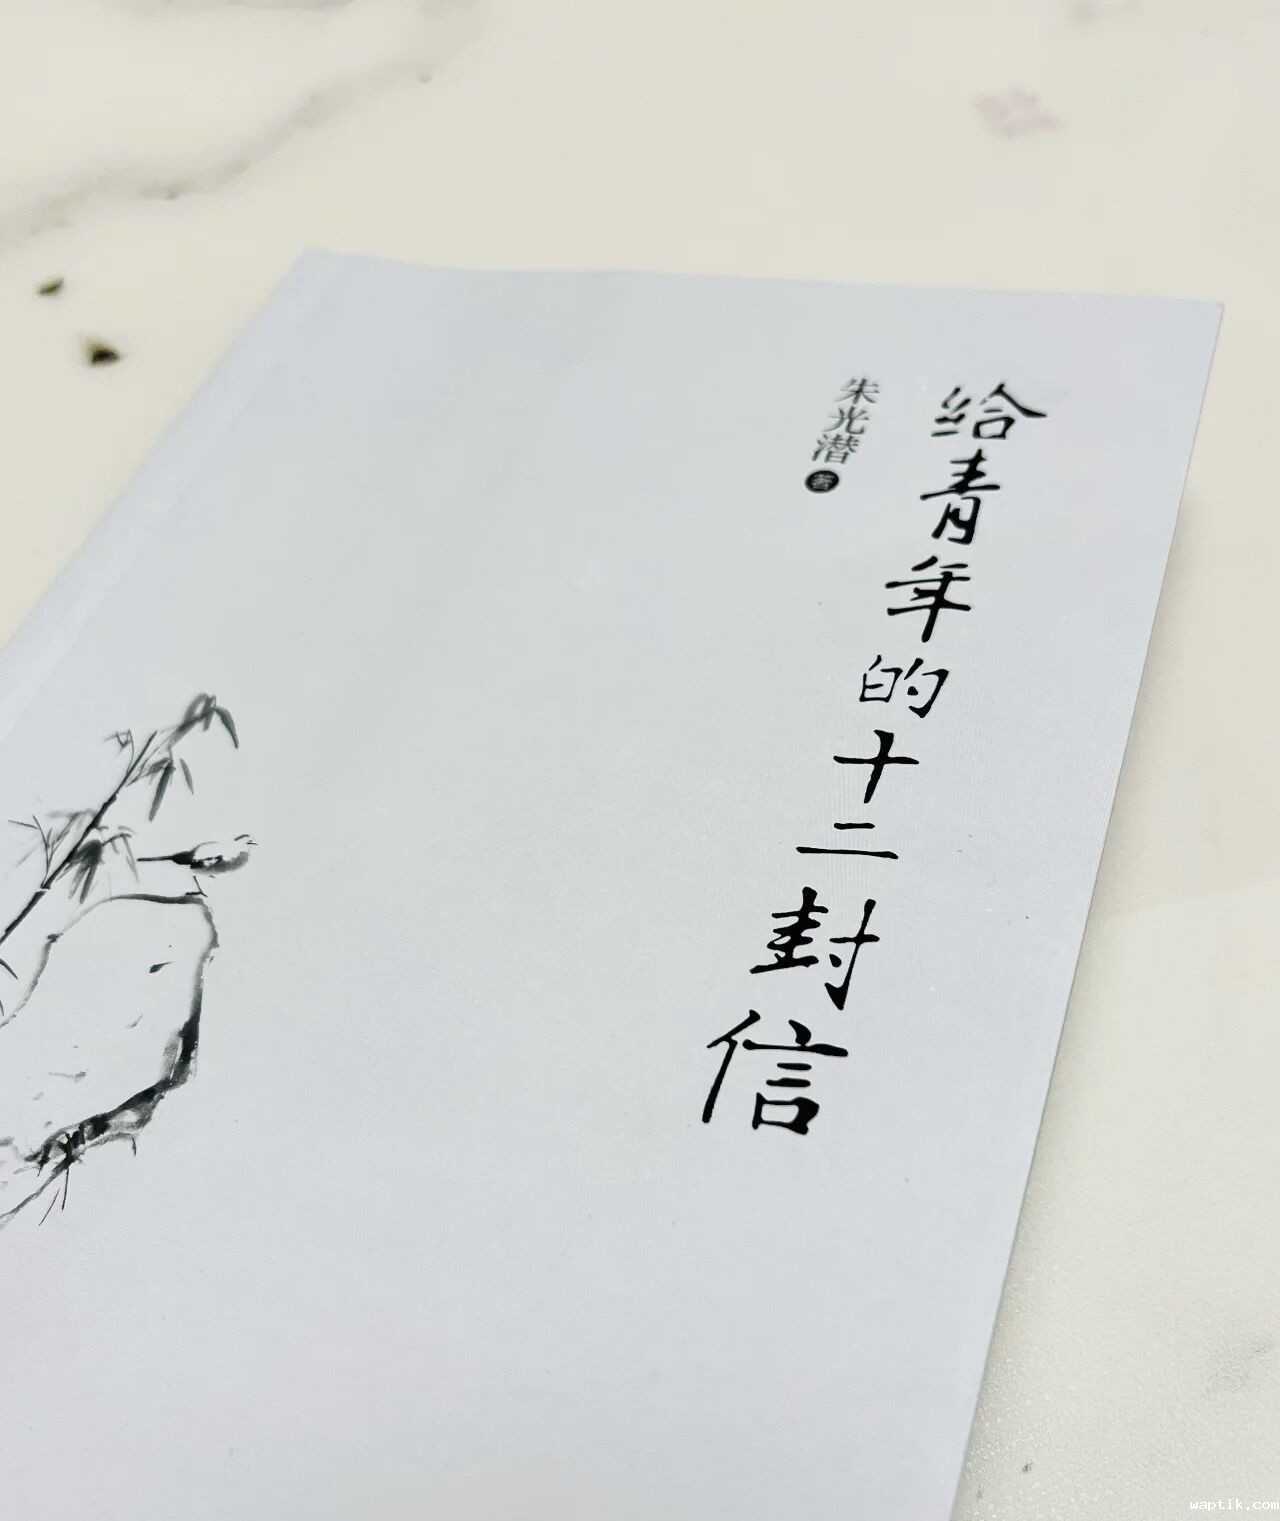 给青年的十二封信
朱光潜 著
waptik.com